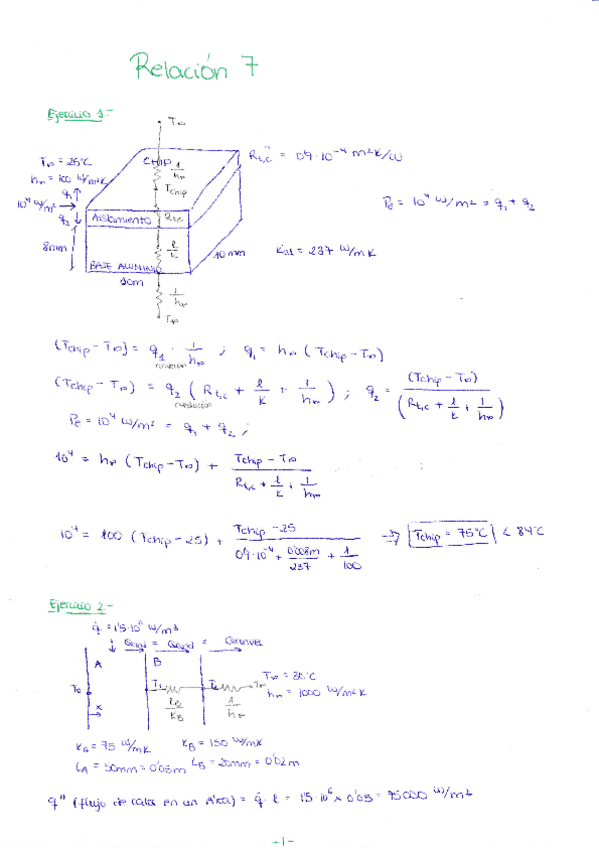 Relación 7
Ejercicio 1:-
T∞
T∞ = 25°C
h∞ = 100 W/m²K
q₁ ↑
10⁴ W/m²
q₂ ↓
CHIP
1/h∞
Tchip
Aislamiento
Rt,c
8mm
l/k
BASE ALUMINIO
10mm
1/h∞
T∞
Rt,c'' = 0'9·10⁻⁴ m²K/W
Pe = 10⁴ W/m² = q₁ + q₂
Kal = 237 W/mK
(Tchip - T∞) = q₁ · 1/h∞ ; q₁ = h∞ (Tchip - T∞)
convección
(Tchip - T∞) = q₂ (Rt,c + l/k + 1/h∞) ; q₂ = (Tchip - T∞) / (Rt,c + l/k + 1/h∞)
conducción
Pe = 10⁴ W/m² = q₁ + q₂ ;
10⁴ = h∞ (Tchip - T∞) + (Tchip - T∞) / (Rt,c + l/k + 1/h∞)
10⁴ = 100 (Tchip - 25) + (Tchip - 25) / (0'9·10⁻⁴ + 0'008m/237 + 1/100) → Tchip = 75°C < 84°C
Ejercicio 2:-
q̇ = 1'5·10⁶ W/m³
A
B
T₀
x
T₁
T₂
T∞
lB/KB
1/h∞
T∞ = 30°C
h∞ = 1000 W/m²K
KA = 75 W/mK KB = 150 W/mK
LA = 50mm = 0'05m LB = 20mm = 0'02m
q'' (flujo de calor en un Área) = q̇ · l = 1'5·10⁶ × 0'05 = 75000 W/m²
-1-